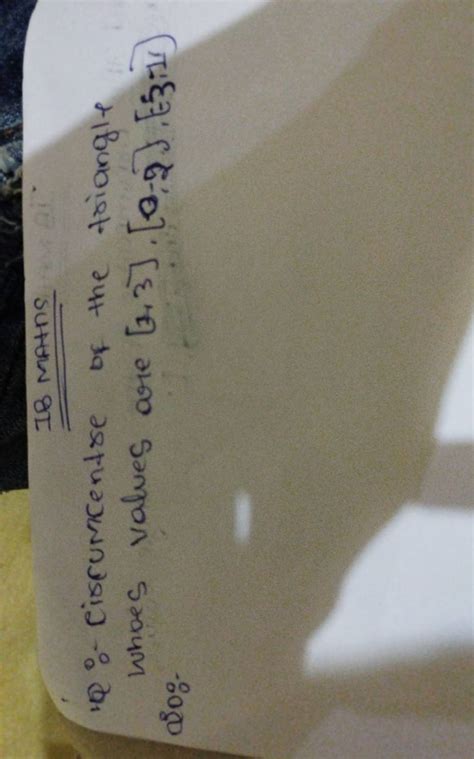 IB MATHS
Q:- Circumcentre of the triangle
whoes values are [1,3], [0,-2], [-3,1]
So:-